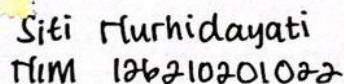 Siti Nurhidayati
NIM 126210201022